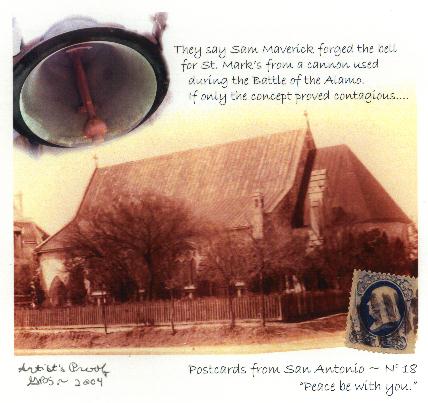 They say Sam Maverick forged the bell
for St. Mark's from a cannon used
during the Battle of the Alamo.
If only the concept proved contagious....
Artist's Proof
2004
Postcards from San Antonio ~ Nº 18
"Peace be with you."